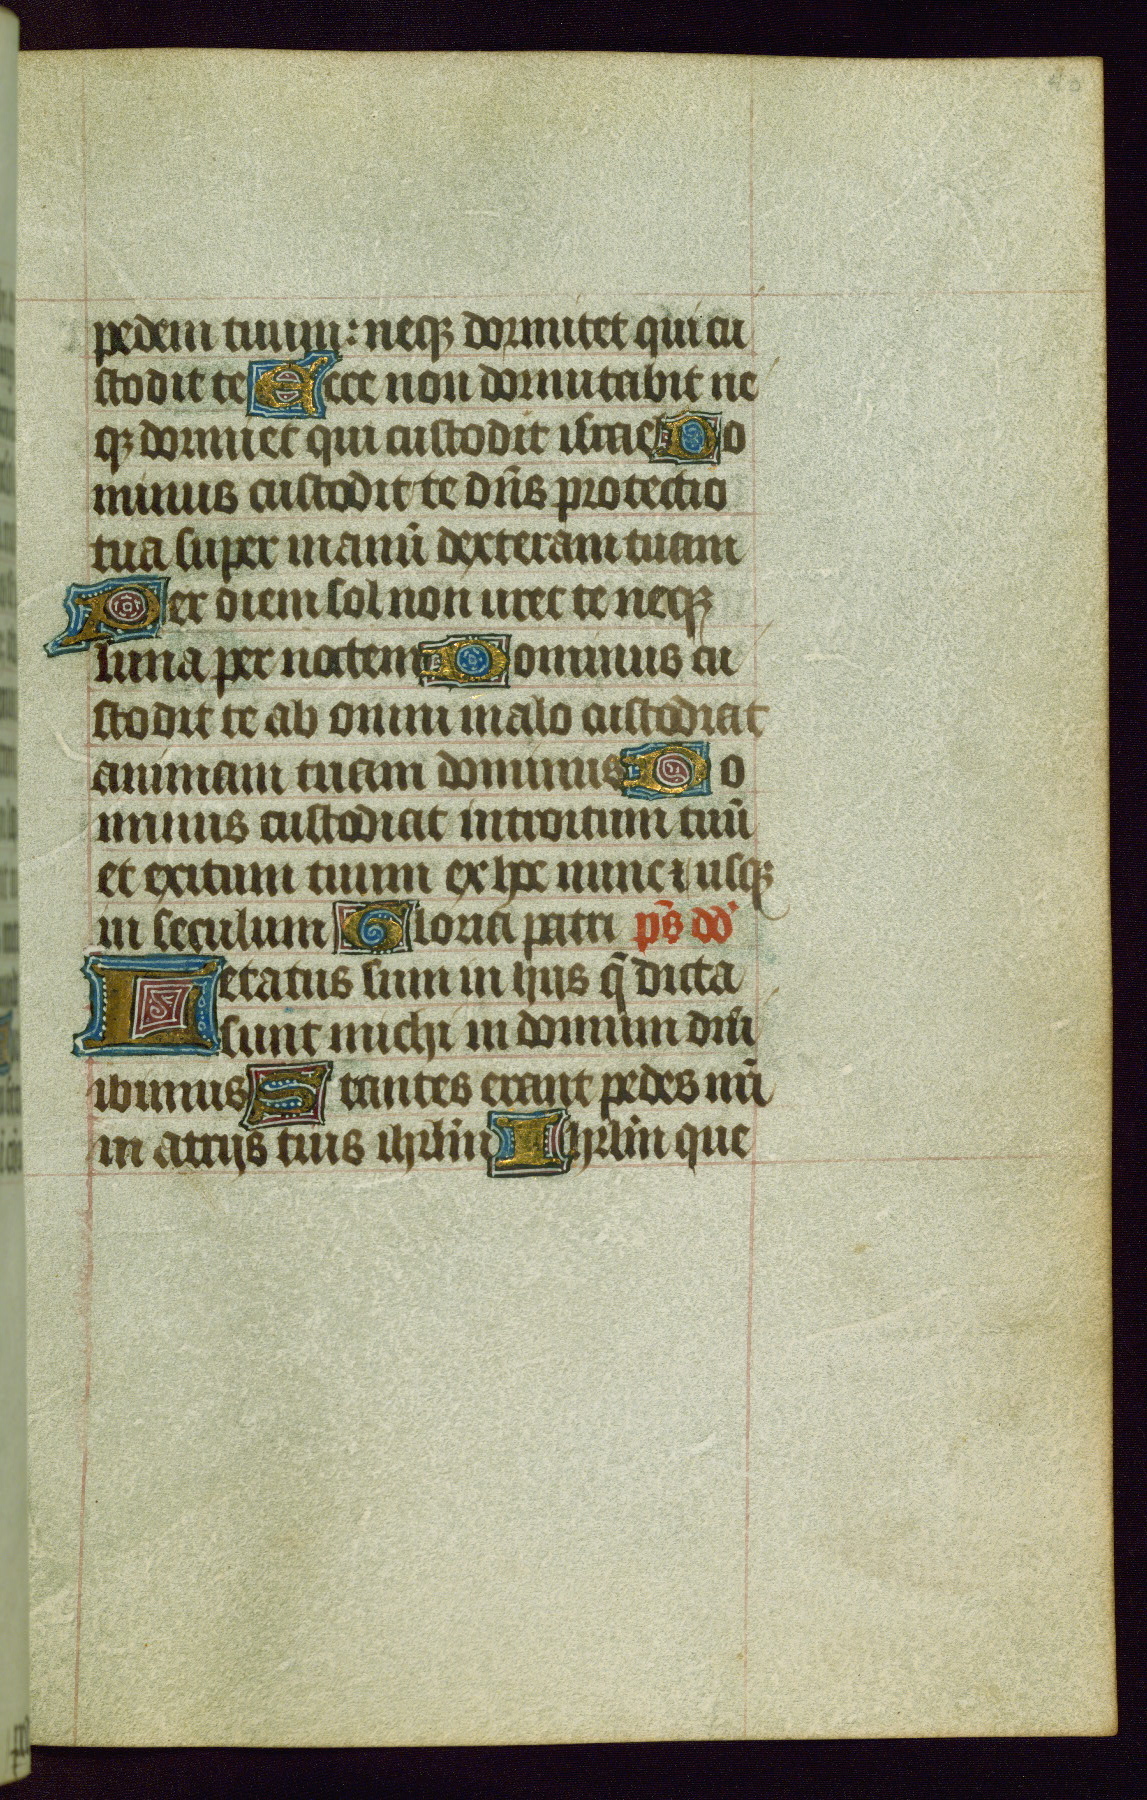 40
pedem tuum: neqꝫ dormitet qui cu
stodit te Ecce non dormitabit ne
qꝫ dormiet qui custodit israel Do
minus custodit te dn̄s protectio
tua super manū dexteram tuam
Per diem sol non uret te neqꝫ
luna per noctem Dominus cu
stodit te ab omni malo custodiat
animam tuam dominus Do
minus custodiat introitum tuū
et exitum tuum ex hoc nunc ⁊ usqꝫ
in seculum Gloria patri ps̄ dd̄
Letatus sum in hijs q̄ dicta
sunt michi in domum dn̄i
ibimus Stantes erant pedes nr̄i
in atrijs tuis ihrl̄m Ihrl̄m que